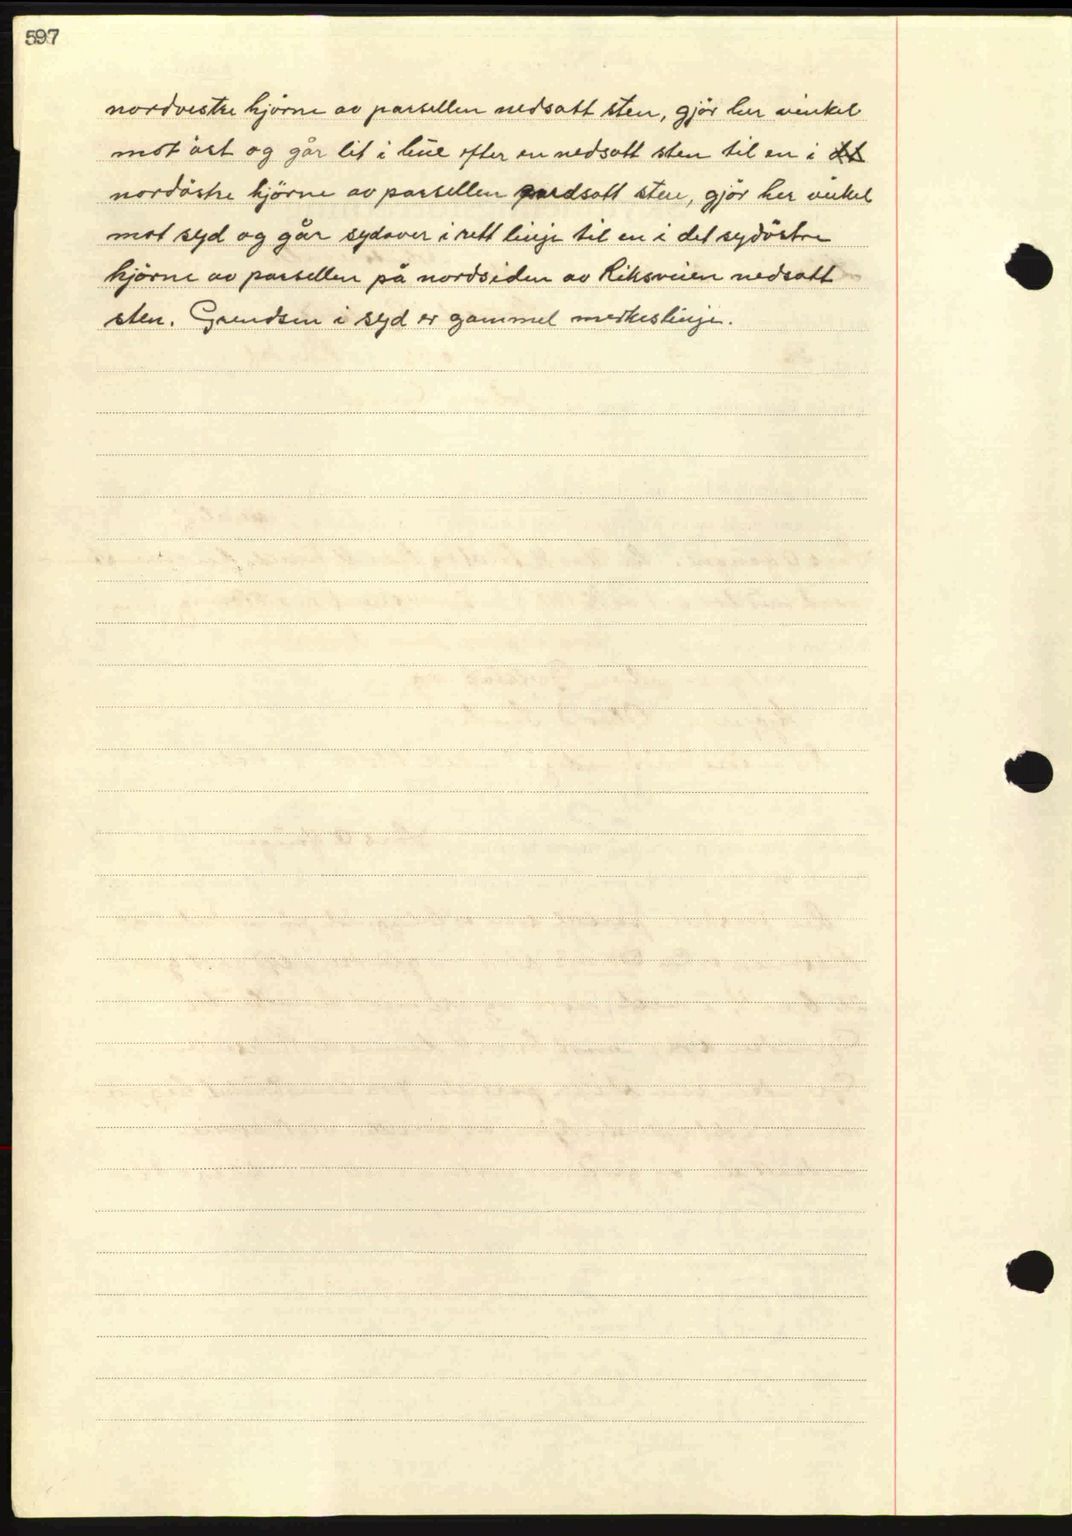 597
nordvestre hjörne av parsellen nedsatt sten, gjör her vinkel
mot öst og går lit i line efter en nedsatt sten til en i
nordöstre hjörne av parsellen nedsatt sten, gjör her vinkel
mot syd og går sydover i rett linje til en i det sydöstre
hjörne av parsellen på nordsiden av Riksveien nedsatt
sten. Grendsen i syd er gammel merkeslinje.